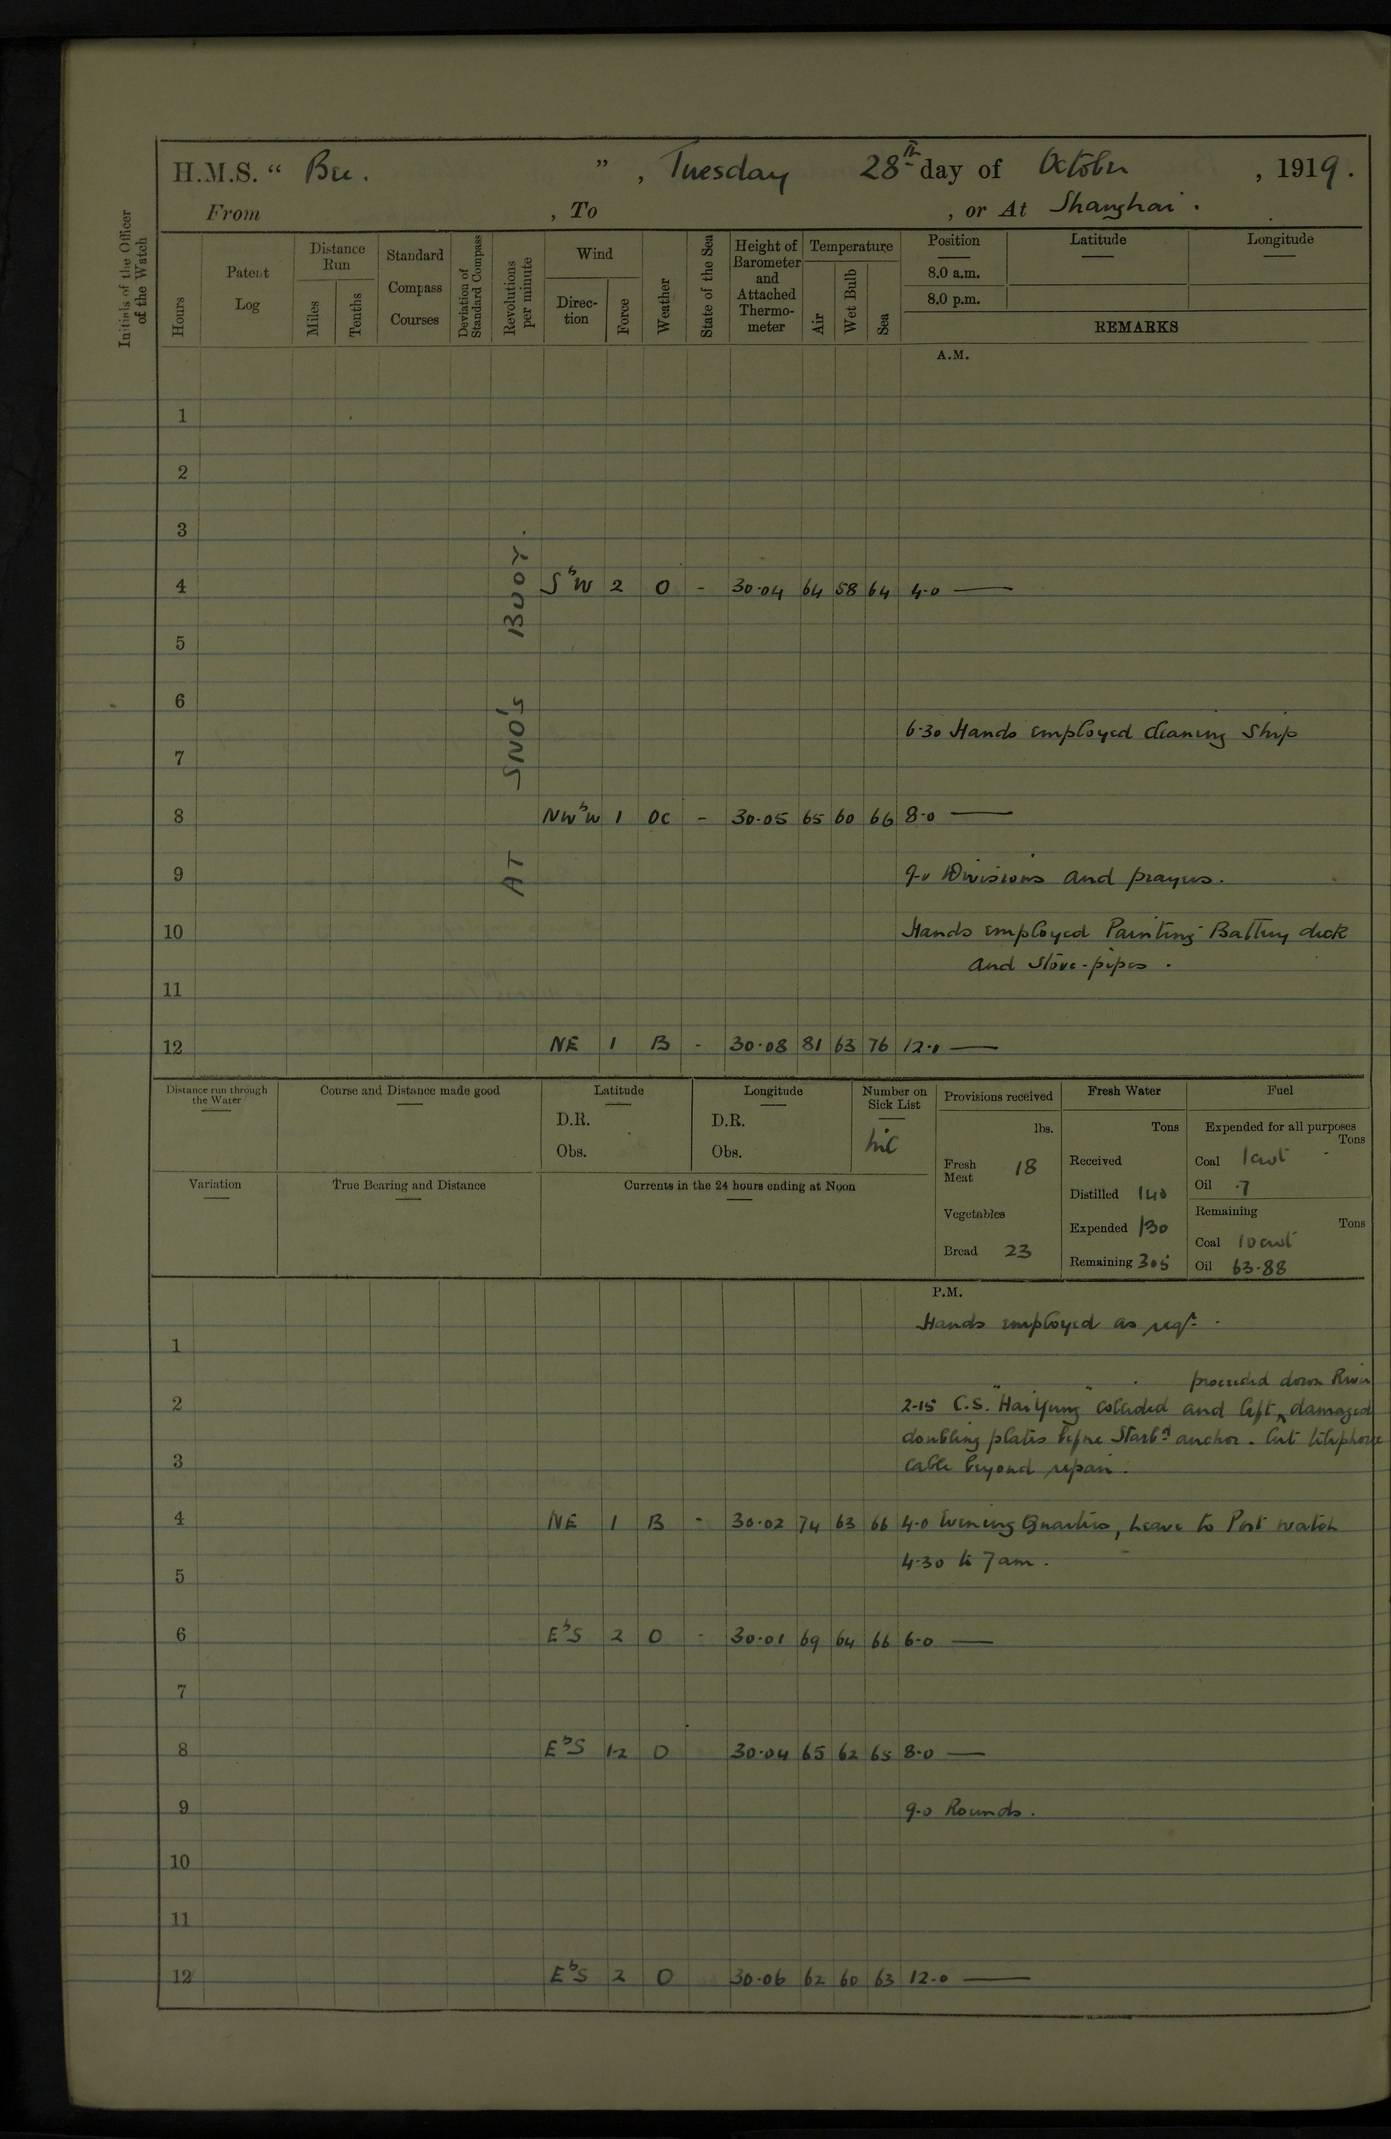 H.M.S. “ Bee. ”, Tuesday 28th day of October, 1919.
From , To , or At Shanghai.
Initials of the Officer of the Watch
Hours
Patent Log
Distance Run
Miles
Tenths
Standard Compass Courses
Deviation of Standard Compass
Revolutions per minute
Wind
Direc-tion
Force
Weather
State of the Sea
Height of Barometer and Attached Thermo-meter
Temperature
Air
Wet Bulb
Sea
Position
8.0 a.m.
8.0 p.m.
Latitude
Longitude
REMARKS
A.M.
AT SNO's BUOY.
1
2
3
4 SbW 2 O - 30.04 64 58 64 4.0 —
5
6
6.30 Hands employed cleaning Ship
7
8 NWbW 1 OC - 30.05 65 60 66 8.0 —
9 9.0 Divisions and prayers.
10 Hands employed Painting Battery deck
and Stove-pipes.
11
12 NE 1 B - 30.08 81 63 76 12.0 —
Distance run through the Water
Course and Distance made good
Latitude
D.R.
Obs.
Longitude
D.R.
Obs.
Number on Sick List
nil
Provisions received
lbs.
Fresh Meat 18
Vegetables
Bread 23
Fresh Water
Tons
Received
Distilled 140
Expended 130
Remaining 305
Fuel
Expended for all purposes
Tons
Coal 1cwt
Oil .7
Remaining
Tons
Coal 10cwt
Oil 63.88
Variation
True Bearing and Distance
Currents in the 24 hours ending at Noon
P.M.
Hands employed as reqd.
1
proceeded down River
2 2-15 C.S. "Hai Yung" collided and left, damaged
doubling plates before Starbd anchor. Cut telephone
3 cable beyond repair.
4 NE 1 B - 30.02 74 63 66 4.0 Evening Quarters, Leave to Port watch
4.30 to 7am.
5
6 EbS 2 O - 30.01 69 64 66 6.0 —
7
8 EbS 1-2 O 30.04 65 62 65 8.0 —
9 9.0 Rounds.
10
11
12 EbS 2 O 30.06 62 60 63 12.0 —